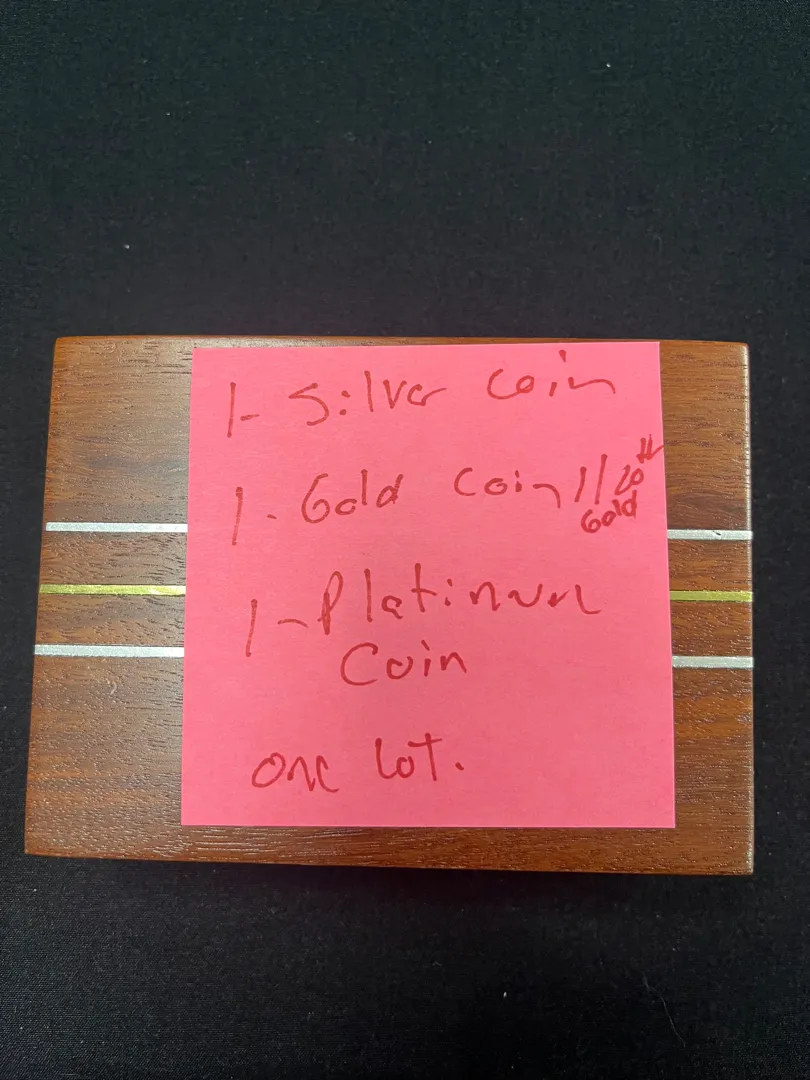 1- Silver Coin
1- Gold Coin 1/20th
Gold
1- Platinum
Coin
one lot.